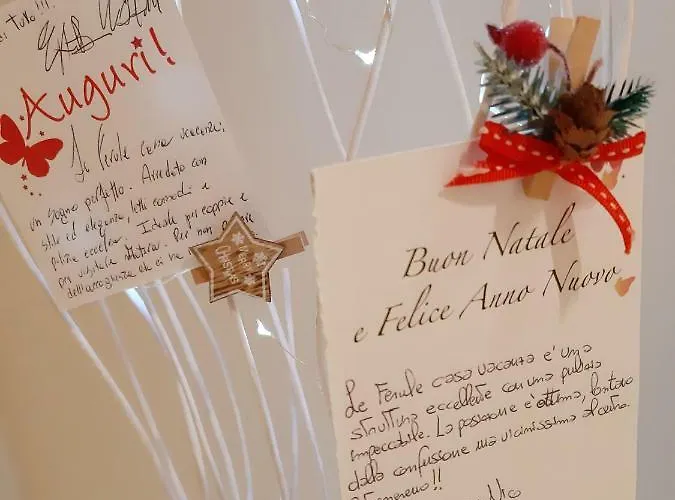 si tutto!!!
Auguri!
Le Ferule casa vacanze:
un sogno perfetto. Arredato con
stile ed eleganza, letti comodi e
pulizia eccellente. Ideale per coppie e
per visitare Matera. Per non
dell'accoglienza che ci ha
MERRY
CHRISTMAS
Buon Natale
e Felice Anno Nuovo
Le Ferule casa vacanza e' una
struttura eccellente con una pulizia
impeccabile. La posizione e' ottima, lontano
dalla confusione ma vicinissima al centro.
Torneremo!!